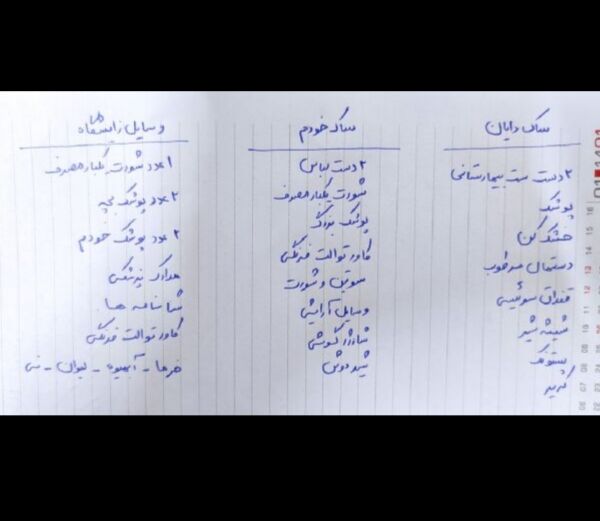 ساک رایان
۲ دست ست بیمارستانی
پوشک
خشک کن
دستمال مرطوب
قنداق سوئیسی
شیشه شیر
پستونک
کریر
ساک خودم
۲ دست لباس
شورت یکبار مصرف
پوشک بزرگ
کاور توالت فرنگی
سوتین و شورت
وسایل آرایشی
شارژر گوشی
شیردوش
وسایل زایشگاه
۱ عدد شورت یکبار مصرف
۲ عدد پوشک بچه
۲ عدد پوشک خودم
مدارک پزشکی
شناسنامه ها
کاور توالت فرنگی
خرما - آبمیوه - لیوان - نی